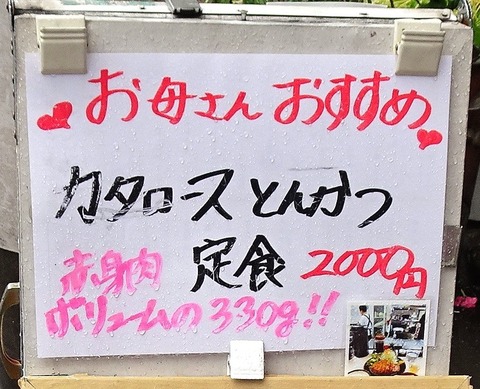 お母さん おすすめ
カタロース とんかつ
定食 2000円
赤身肉
ボリュームの330g!!